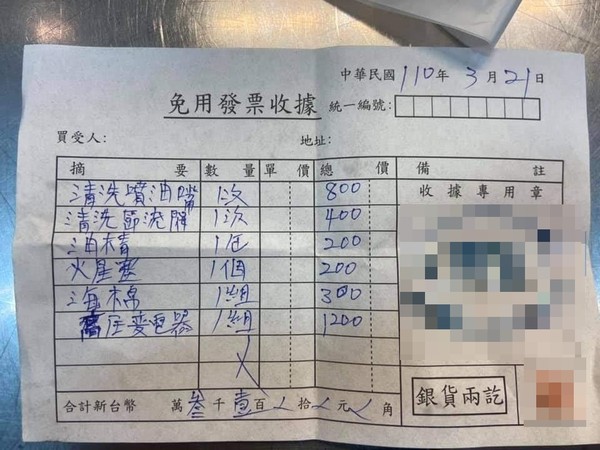 中華民國110年3月21日
免用發票收據 統一編號:
買受人: 地址:
摘要 數量 單價 總價 備註
清洗噴油嘴 1次 800 收據專用章
清洗節流閥 1次 400
油精 1 200
火星塞 1個 200
海棉 1組 300
高压變電器 1組 1200
合計新台幣 萬叁千壹百 拾 元 角
銀貨兩訖